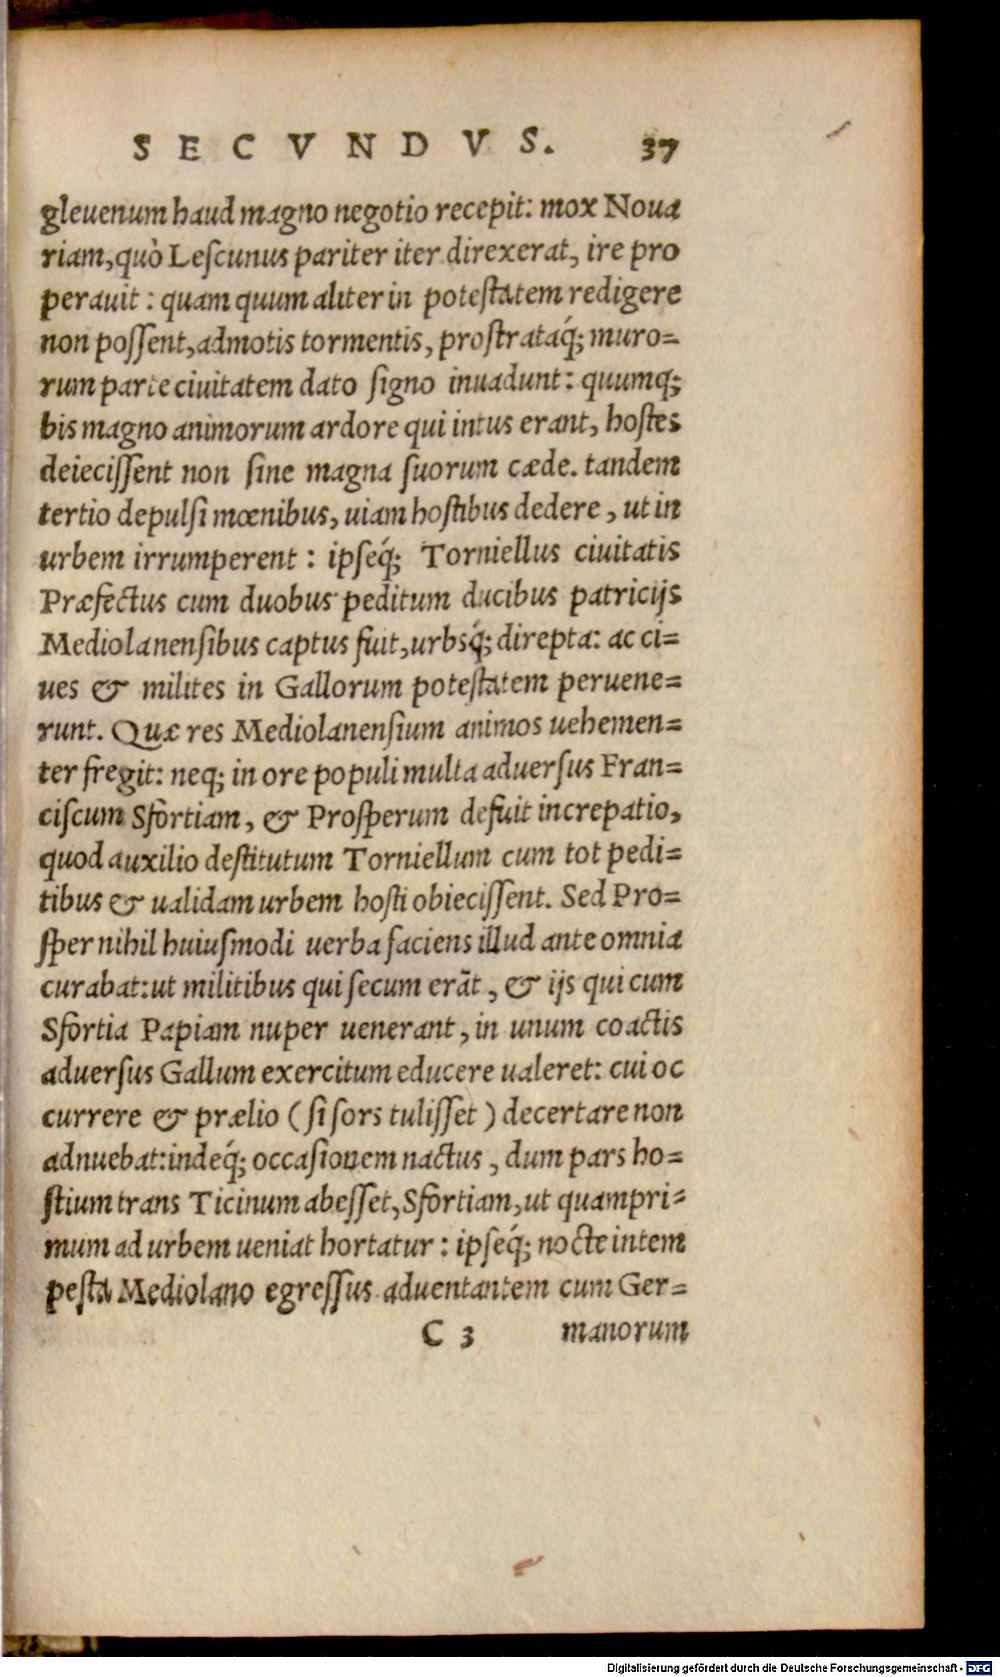 SECVNDVS. 37
gleuenum haud magno negotio recepit: mox Noua
riam, quò Leſcunus pariter iter direxerat, ire pro
perauit: quam quum aliter in poteſtatem redigere
non poſſent, admotis tormentis, proſtrataq́; muro=
rum parte ciuitatem dato ſigno inuadunt: quumq;
bis magno animorum ardore qui intus erant, hoſtes
deieciſſent non ſine magna ſuorum cæde. tandem
tertio depulſi mœnibus, uiam hoſtibus dedere, ut in
urbem irrumperent: ipſeq́; Torniellus ciuitatis
Præfectus cum duobus peditum ducibus patricijs
Mediolanenſibus captus fuit, urbsq́; direpta: ac ci=
ues & milites in Gallorum poteſtatem peruene=
runt. Quæ res Mediolanenſium animos uehemen=
ter fregit: neq; in ore populi multa aduerſus Fran=
ciſcum Sfortiam, & Proſperum defuit increpatio,
quod auxilio deſtitutum Torniellum cum tot pedi=
tibus & ualidam urbem hoſti obieciſſent. Sed Pro=
ſper nihil huiuſmodi uerba faciens illud ante omnia
curabat: ut militibus qui ſecum erāt, & ijs qui cum
Sfortia Papiam nuper uenerant, in unum coactis
aduerſus Gallum exercitum educere ualeret: cui oc
currere & prælio (ſi ſors tuliſſet) decertare non
adnuebat: indeq́; occaſionem nactus, dum pars ho=
ſtium trans Ticinum abeſſet, Sfortiam, ut quampri=
mum ad urbem ueniat hortatur: ipſeq́; nocte intem
peſta Mediolano egreſſus aduentantem cum Ger=
C 3 manorum
Digitalisierung gefördert durch die Deutsche Forschungsgemeinschaft - DFG